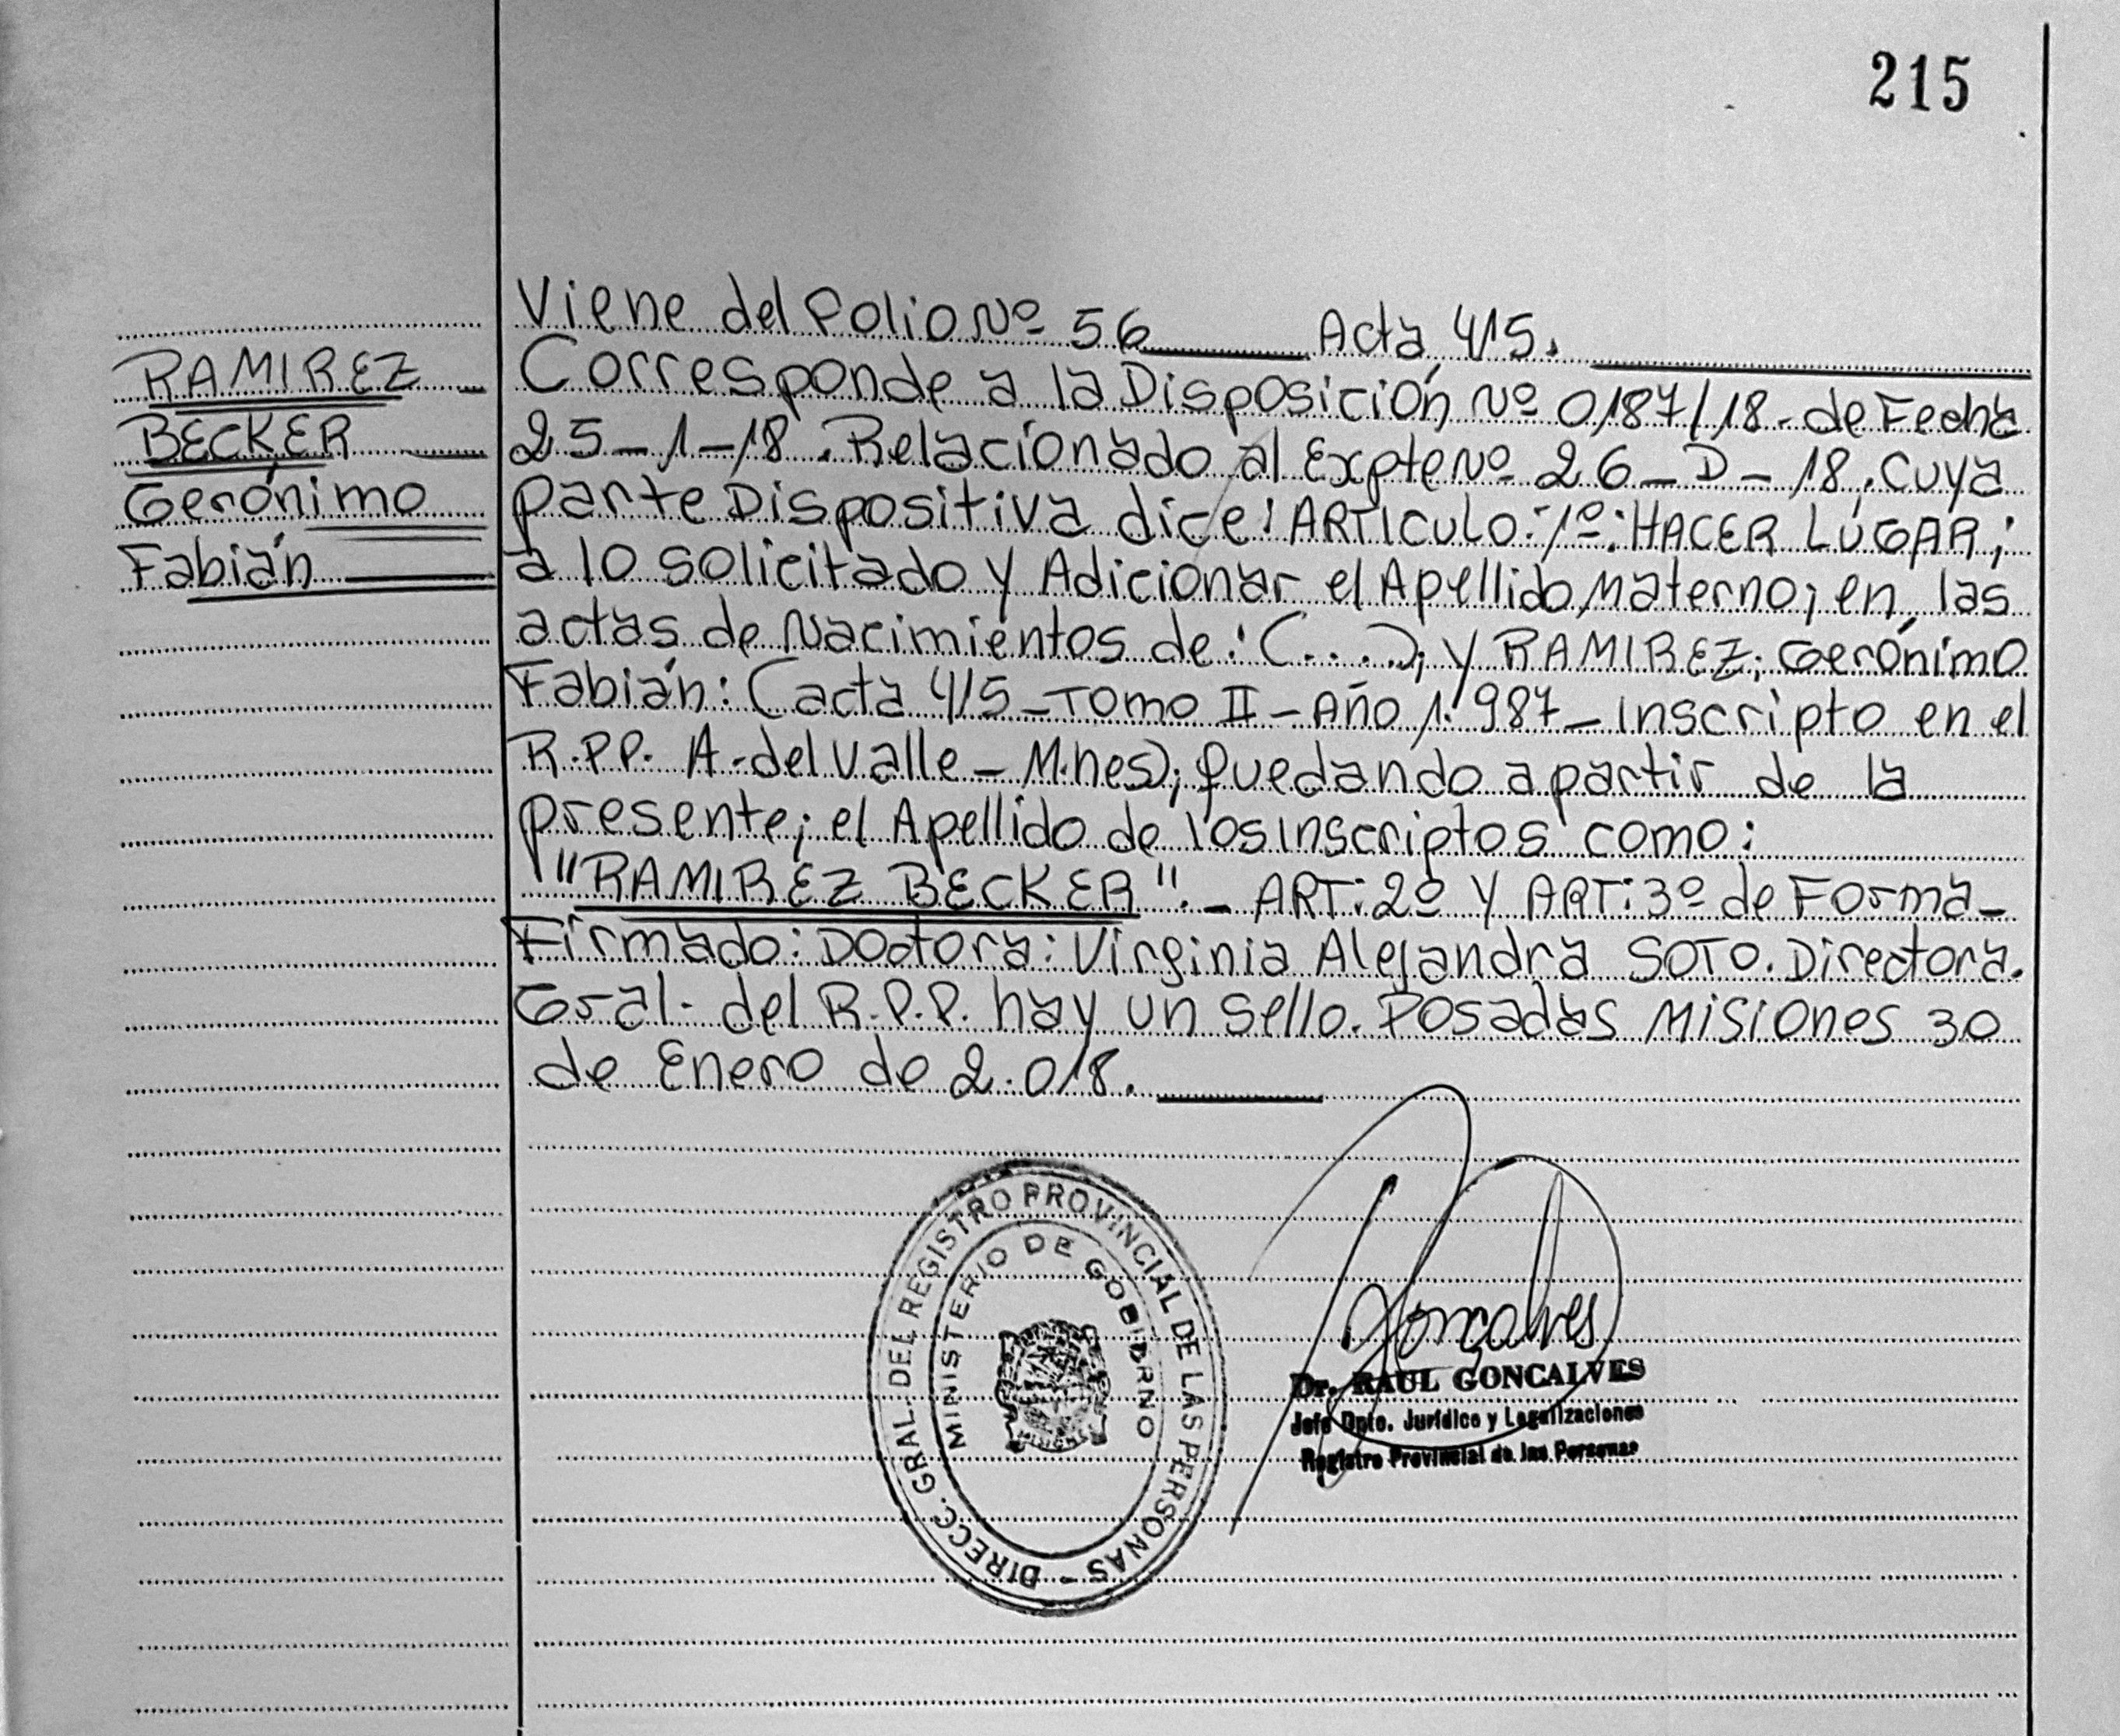 215
Viene del Folio Nº 56 Acta 415.
RAMIREZ
BECKER
Gerónimo
Fabián
Corresponde a la Disposición Nº 0187/18- de Fecha
25-1-18. Relacionado al Expte Nº 26-D-18. Cuya
parte Dispositiva dice: ARTICULO: 1º: HACER LUGAR;
a lo solicitado y Adicionar el Apellido Materno; en las
actas de Nacimientos de: (....); y RAMIREZ; Gerónimo
Fabián: (acta 415-Tomo II-Año 1.987-Inscripto en el
R.P.P. A.-del Valle-M.nes); quedando a partir de la
presente; el Apellido de los Inscriptos como:
"RAMIREZ BECKER".- ART: 2º Y ART: 3º de Forma-
Firmado: Doctora: Virginia Alejandra SOTO. Directora.
Gral. del R.P.P. hay un sello. Posadas Misiones 30
de Enero de 2.018.
DIRECC. GRAL. DEL REGISTRO PROVINCIAL DE LAS PERSONAS -
MINISTERIO DE GOBIERNO
MISIONES
Goncalves
Dr. RAUL GONCALVES
Jefe Dpto. Jurídico y Legalizaciones
Registro Provincial de las Personas